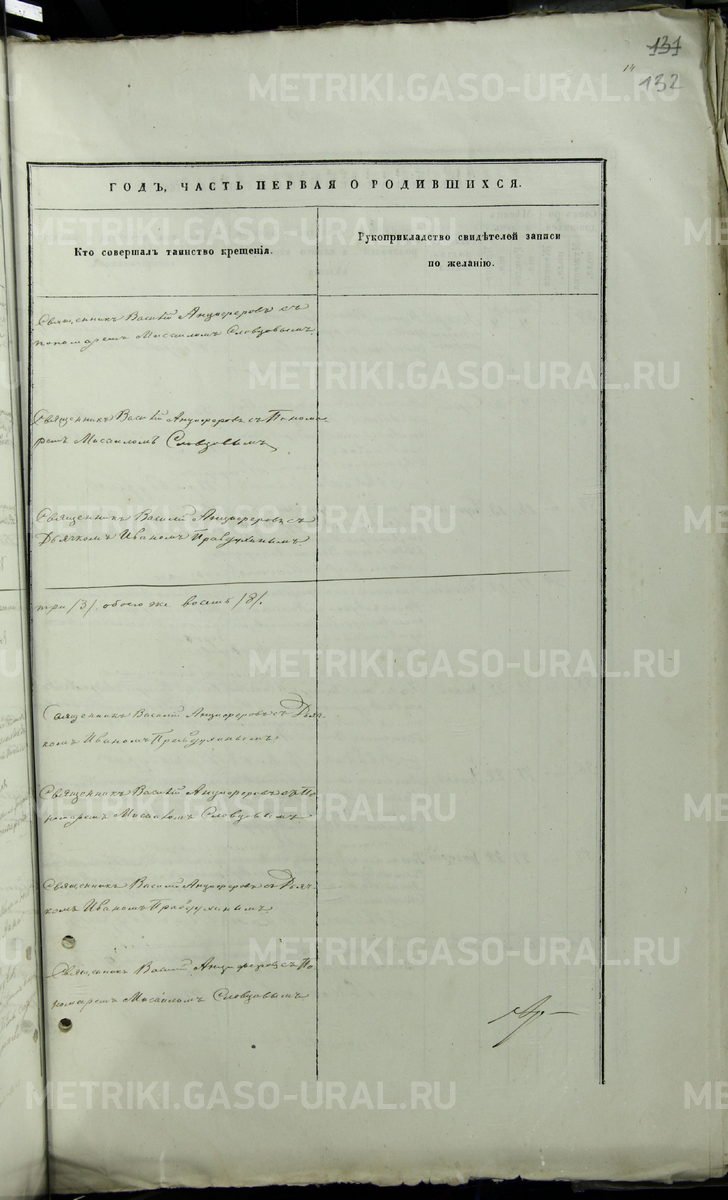 131
14
132
ГОДЪ, ЧАСТЬ ПЕРВАЯ О РОДИВШИХСЯ.
Кто совершалъ таинство крещенія.
Рукоприкладство свидѣтелей записи
по желанію.
Священникъ Василій Анциферовъ съ
пономаремъ Мисаиломъ Словцовымъ.
Священникъ Василій Анциферовъ съ Понома-
ремъ Мисаиломъ Словцовымъ
Священникъ Василій Анциферовъ съ
Дьячкомъ Иваномъ Правдухинымъ
три /3/. обоего же восемь /8/.
Священникъ Василій Анциферовъ съ Дьяч-
комъ Иваномъ Правдухинымъ.
Священникъ Василій Анциферовъ съ По
номаремъ Мисаиломъ Словцовымъ
Священникъ Василій Анциферовъ съ Дьяч-
комъ Иваномъ Правдухинымъ.
Священникъ Василій Анциферовъ съ По
номаремъ Мисаиломъ Словцовымъ
METRIKI.GASO-URAL.RU